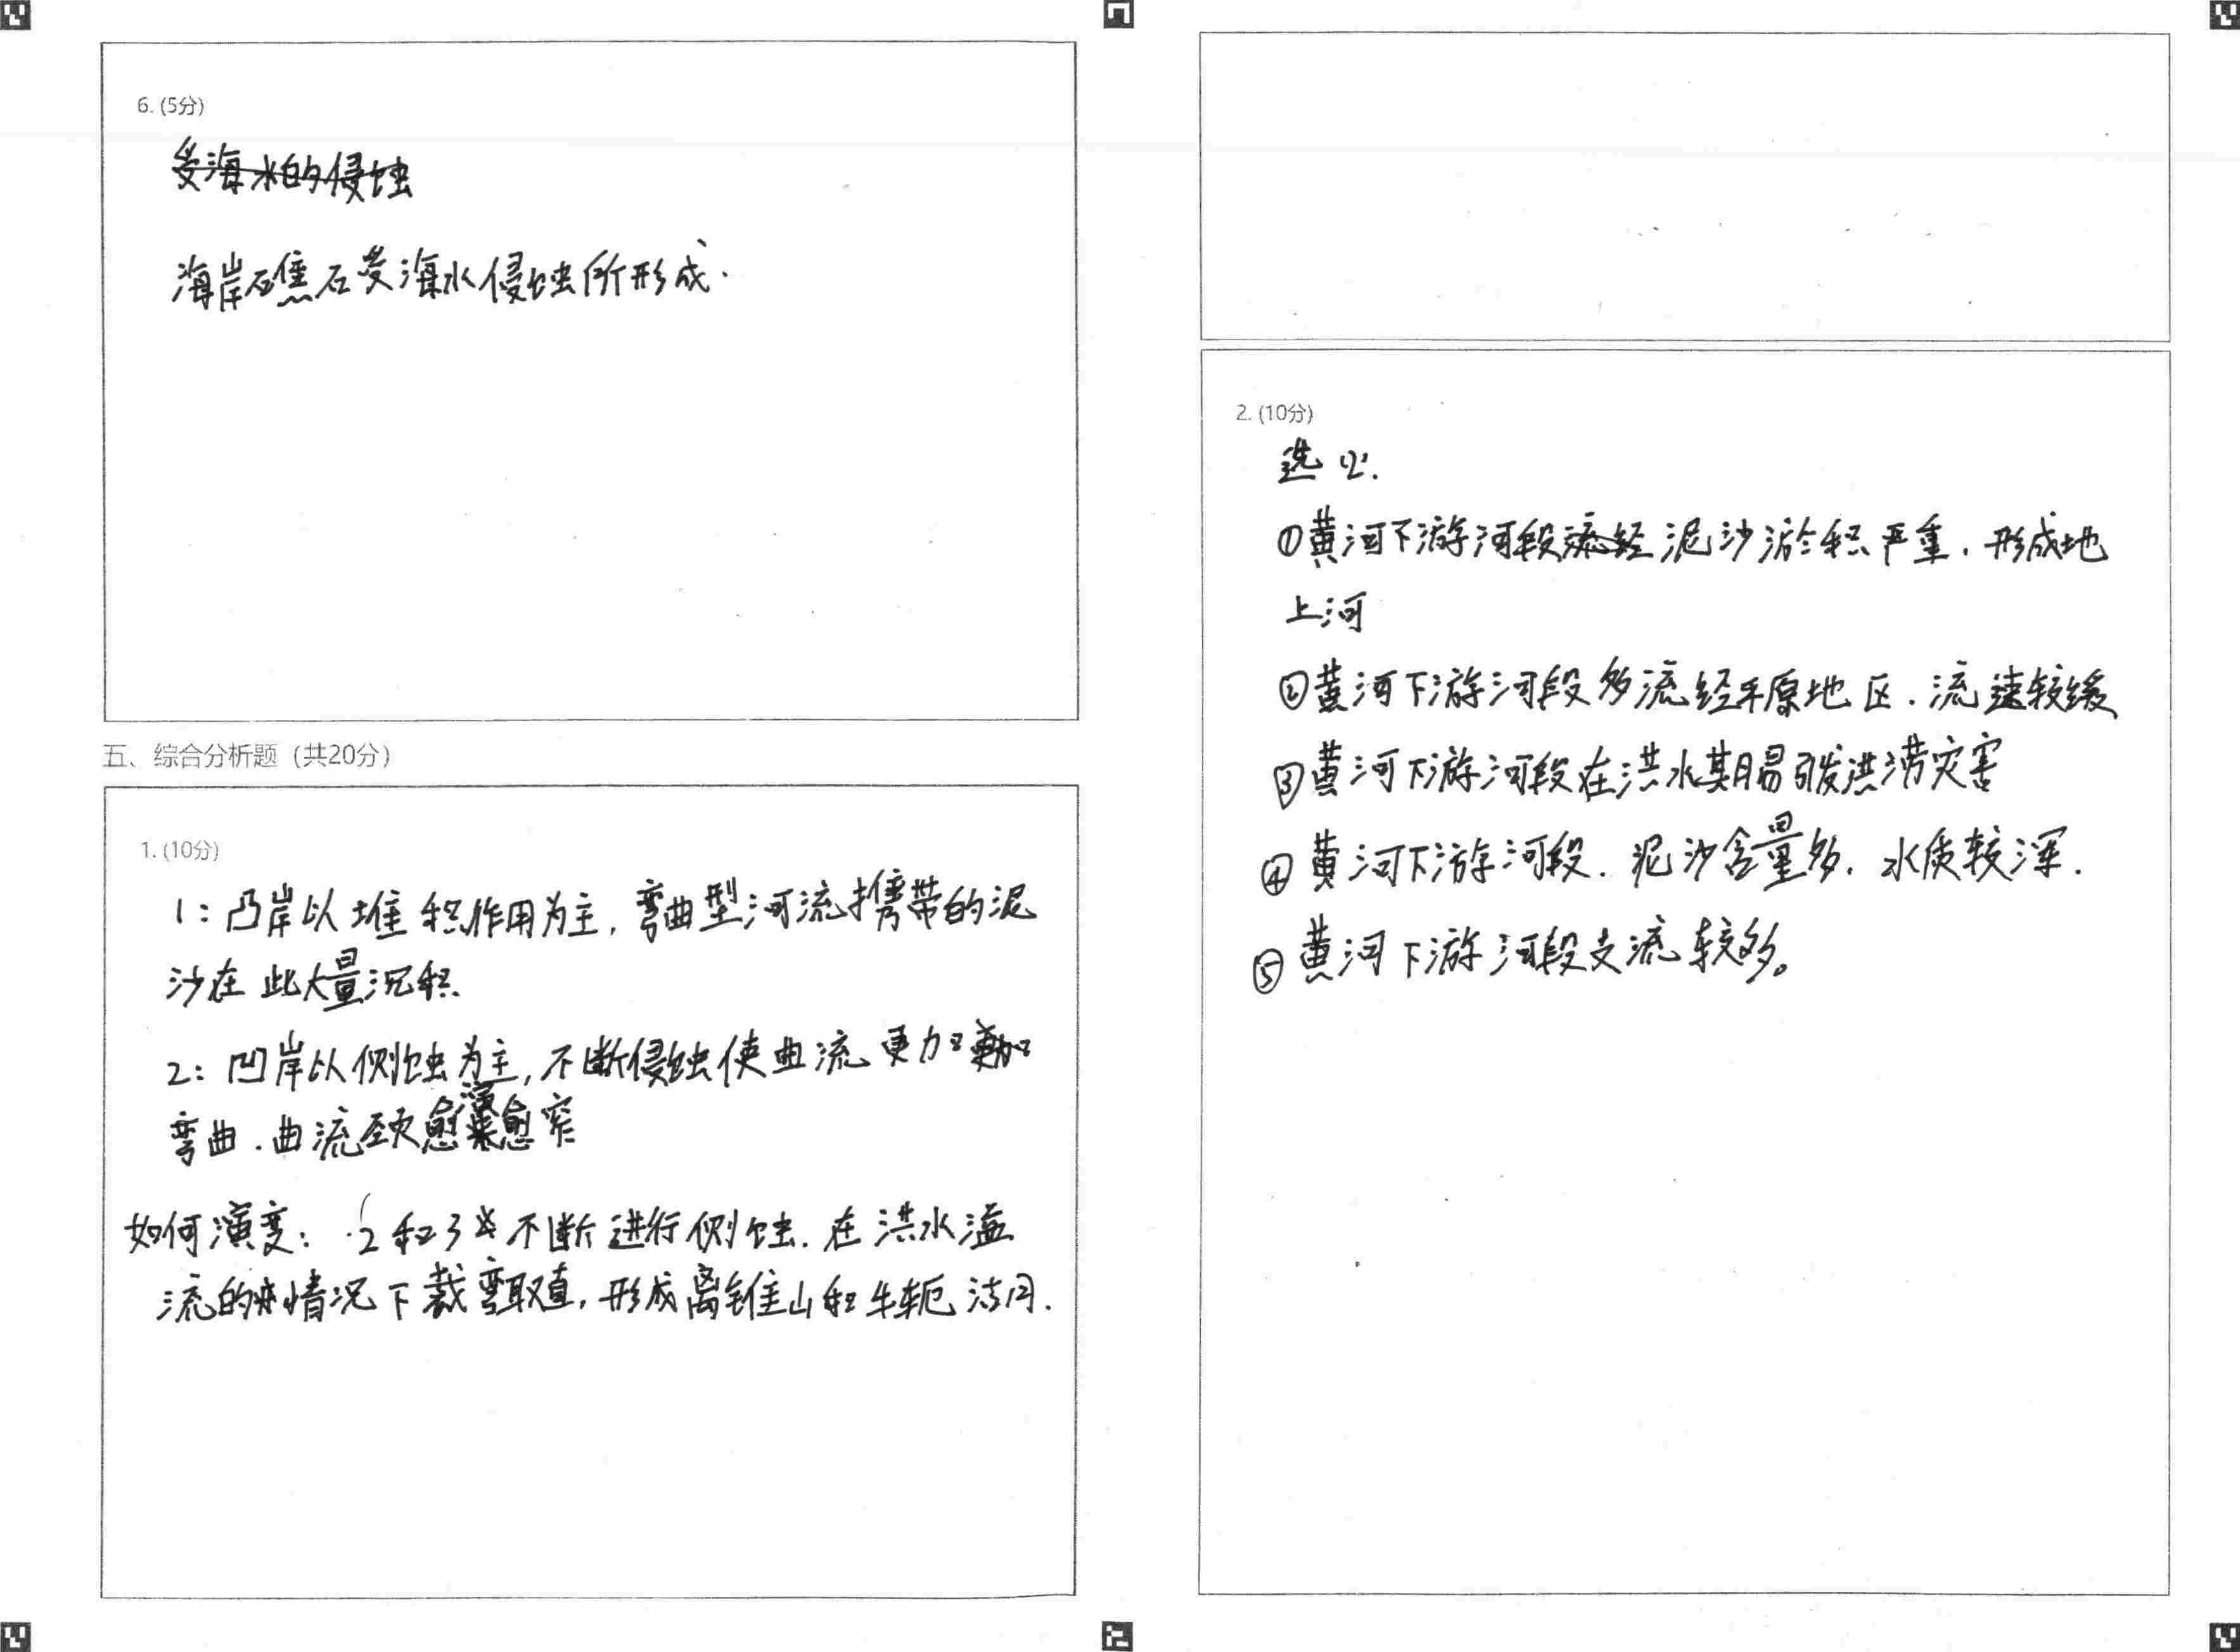 6. (5分)
受海水的侵蚀
海岸礁石受海水侵蚀所形成.
五、综合分析题（共20分）
1. (10分)
1：凸岸以堆积作用为主，弯曲型河流携带的泥
沙在此大量沉积.
2：凹岸以侧蚀为主，不断侵蚀使曲流更加
弯曲.曲流颈愈演愈窄
如何演变：2和3 不断进行侧蚀.在洪水溢
流的情况下裁弯取直，形成离锥山和牛轭湖.
2. (10分)
选(2).
①黄河下游河段流经泥沙淤积严重.形成地
上河
②黄河下游河段多流经平原地区.流速较缓
③黄河下游河段在洪水期易引发洪涝灾害
④黄河下游河段.泥沙含量多.水质较浑.
⑤黄河下游河段支流较多。